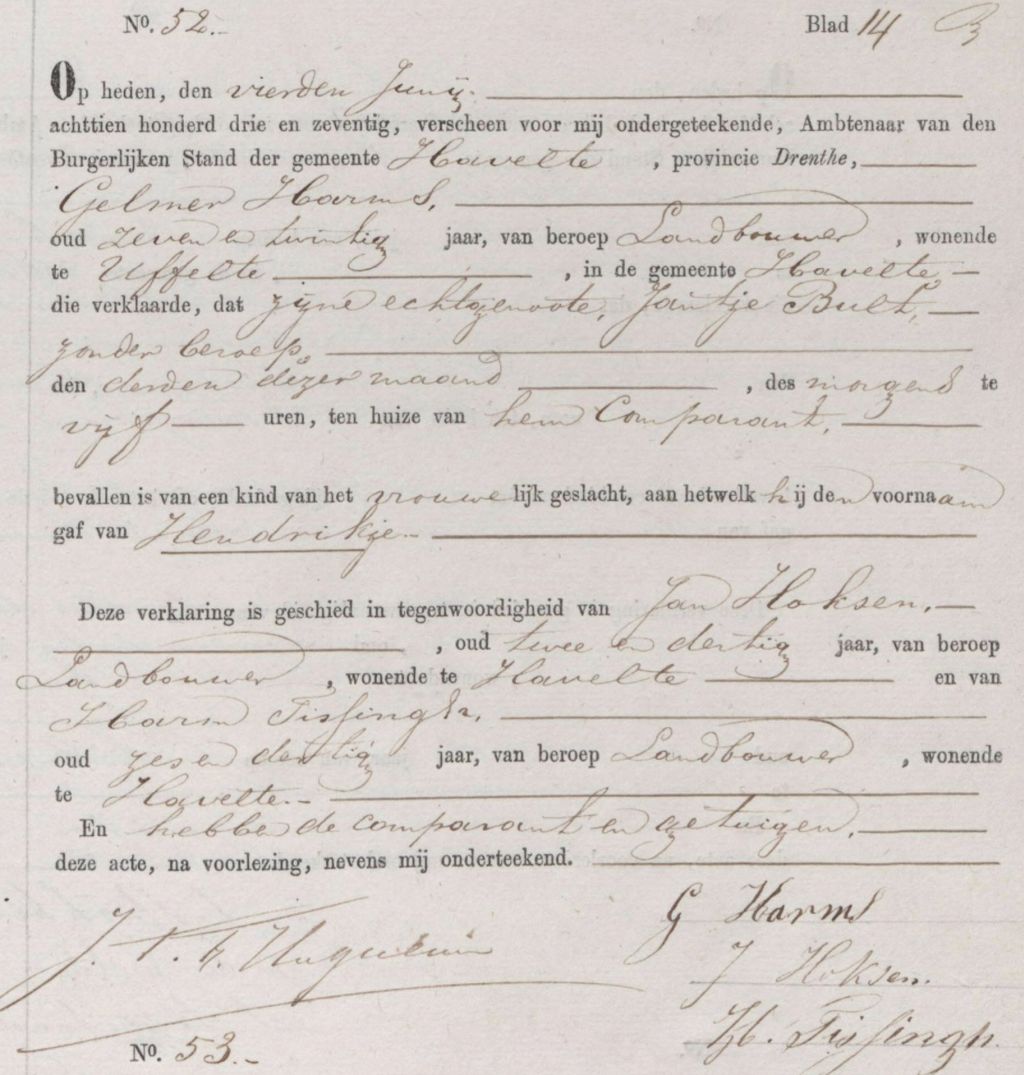 No. 52.- Blad 14
Op heden, den vierden Junij.
achttien honderd drie en zeventig, verscheen voor mij ondergeteekende, Ambtenaar van den
Burgerlijken Stand der gemeente Havelte, provincie Drenthe,
Gelmer Harms,
oud zeven en twintig jaar, van beroep Landbouwer, wonende
te Uffelte, in de gemeente Havelte
die verklaarde, dat zijne echtgenoote, Jantje Bult,
zonder beroep,
den derden dezer maand, des morgens te
vijf uren, ten huize van hem Comparant,
bevallen is van een kind van het vrouwelijk geslacht, aan hetwelk hij den voornaam
gaf van Hendrikje.-
Deze verklaring is geschied in tegenwoordigheid van Jan Hoksen,
, oud twee en dertig jaar, van beroep
Landbouwer, wonende te Havelte en van
Harm Tissingh,
oud zes en dertig jaar, van beroep Landbouwer, wonende
te Havelte.-
En hebben de comparant en getuigen,
deze acte, na voorlezing, nevens mij onderteekend.
G Harms
J Hoksen.
H. Tissingh.
No. 53.-